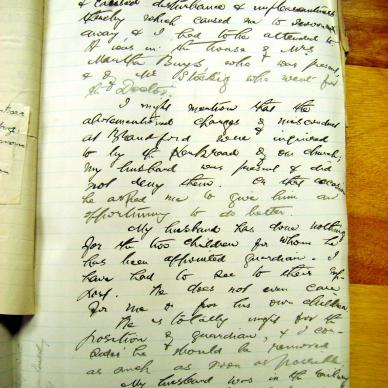 & caused disturbance & unpleasantness
thereby which caused me to
away, & I had to be attended to
It was in the house of Mrs
Martha Buys, who was present,
& of Mr Stocking who went for
the Doctor.
I might mention that the
abovementioned charges of misconduct
at Blandford were inquired
to by the Kerkraad of our church;
my husband was present & did
not deny them. On that occasion
he asked me to give him an
opportunity to do better.
My husband has done nothing
for the two children for whom he
has been appointed guardian. I
have had to see to their
He does not even care
for me or for his own children
He is totally unfit for the
position of guardian, & I con-
sider he should be removed
as such as soon as possible
My husband was in the